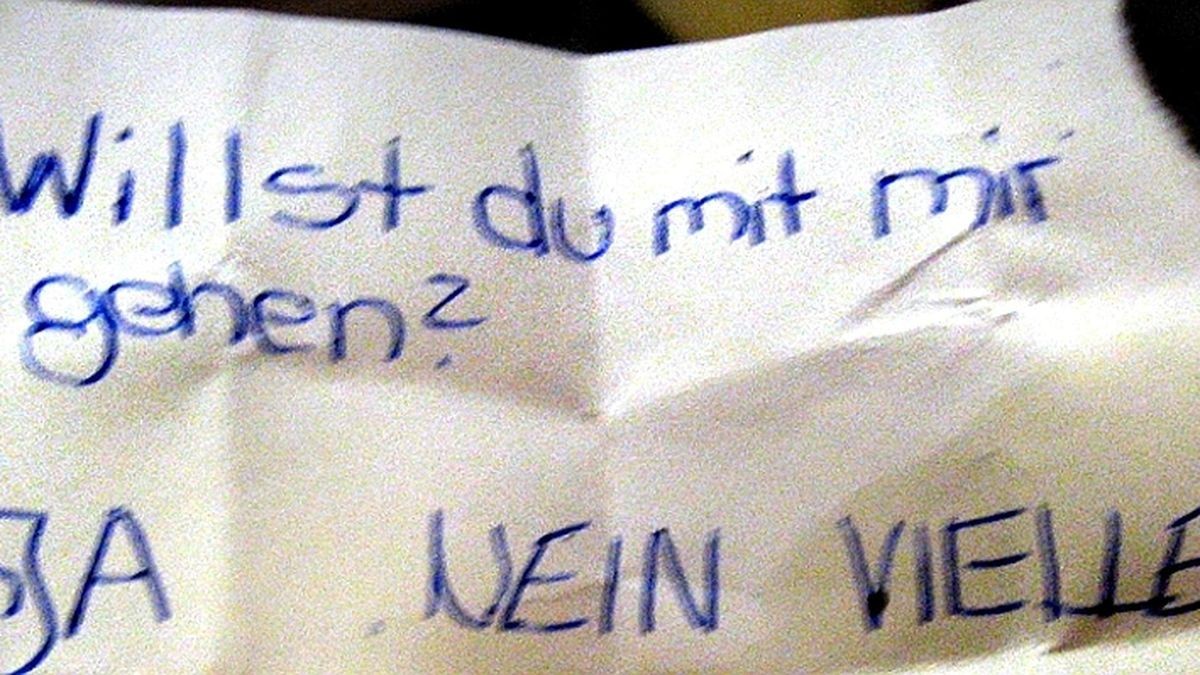 Willst du mit mir
gehen?
JA NEIN VIELLE